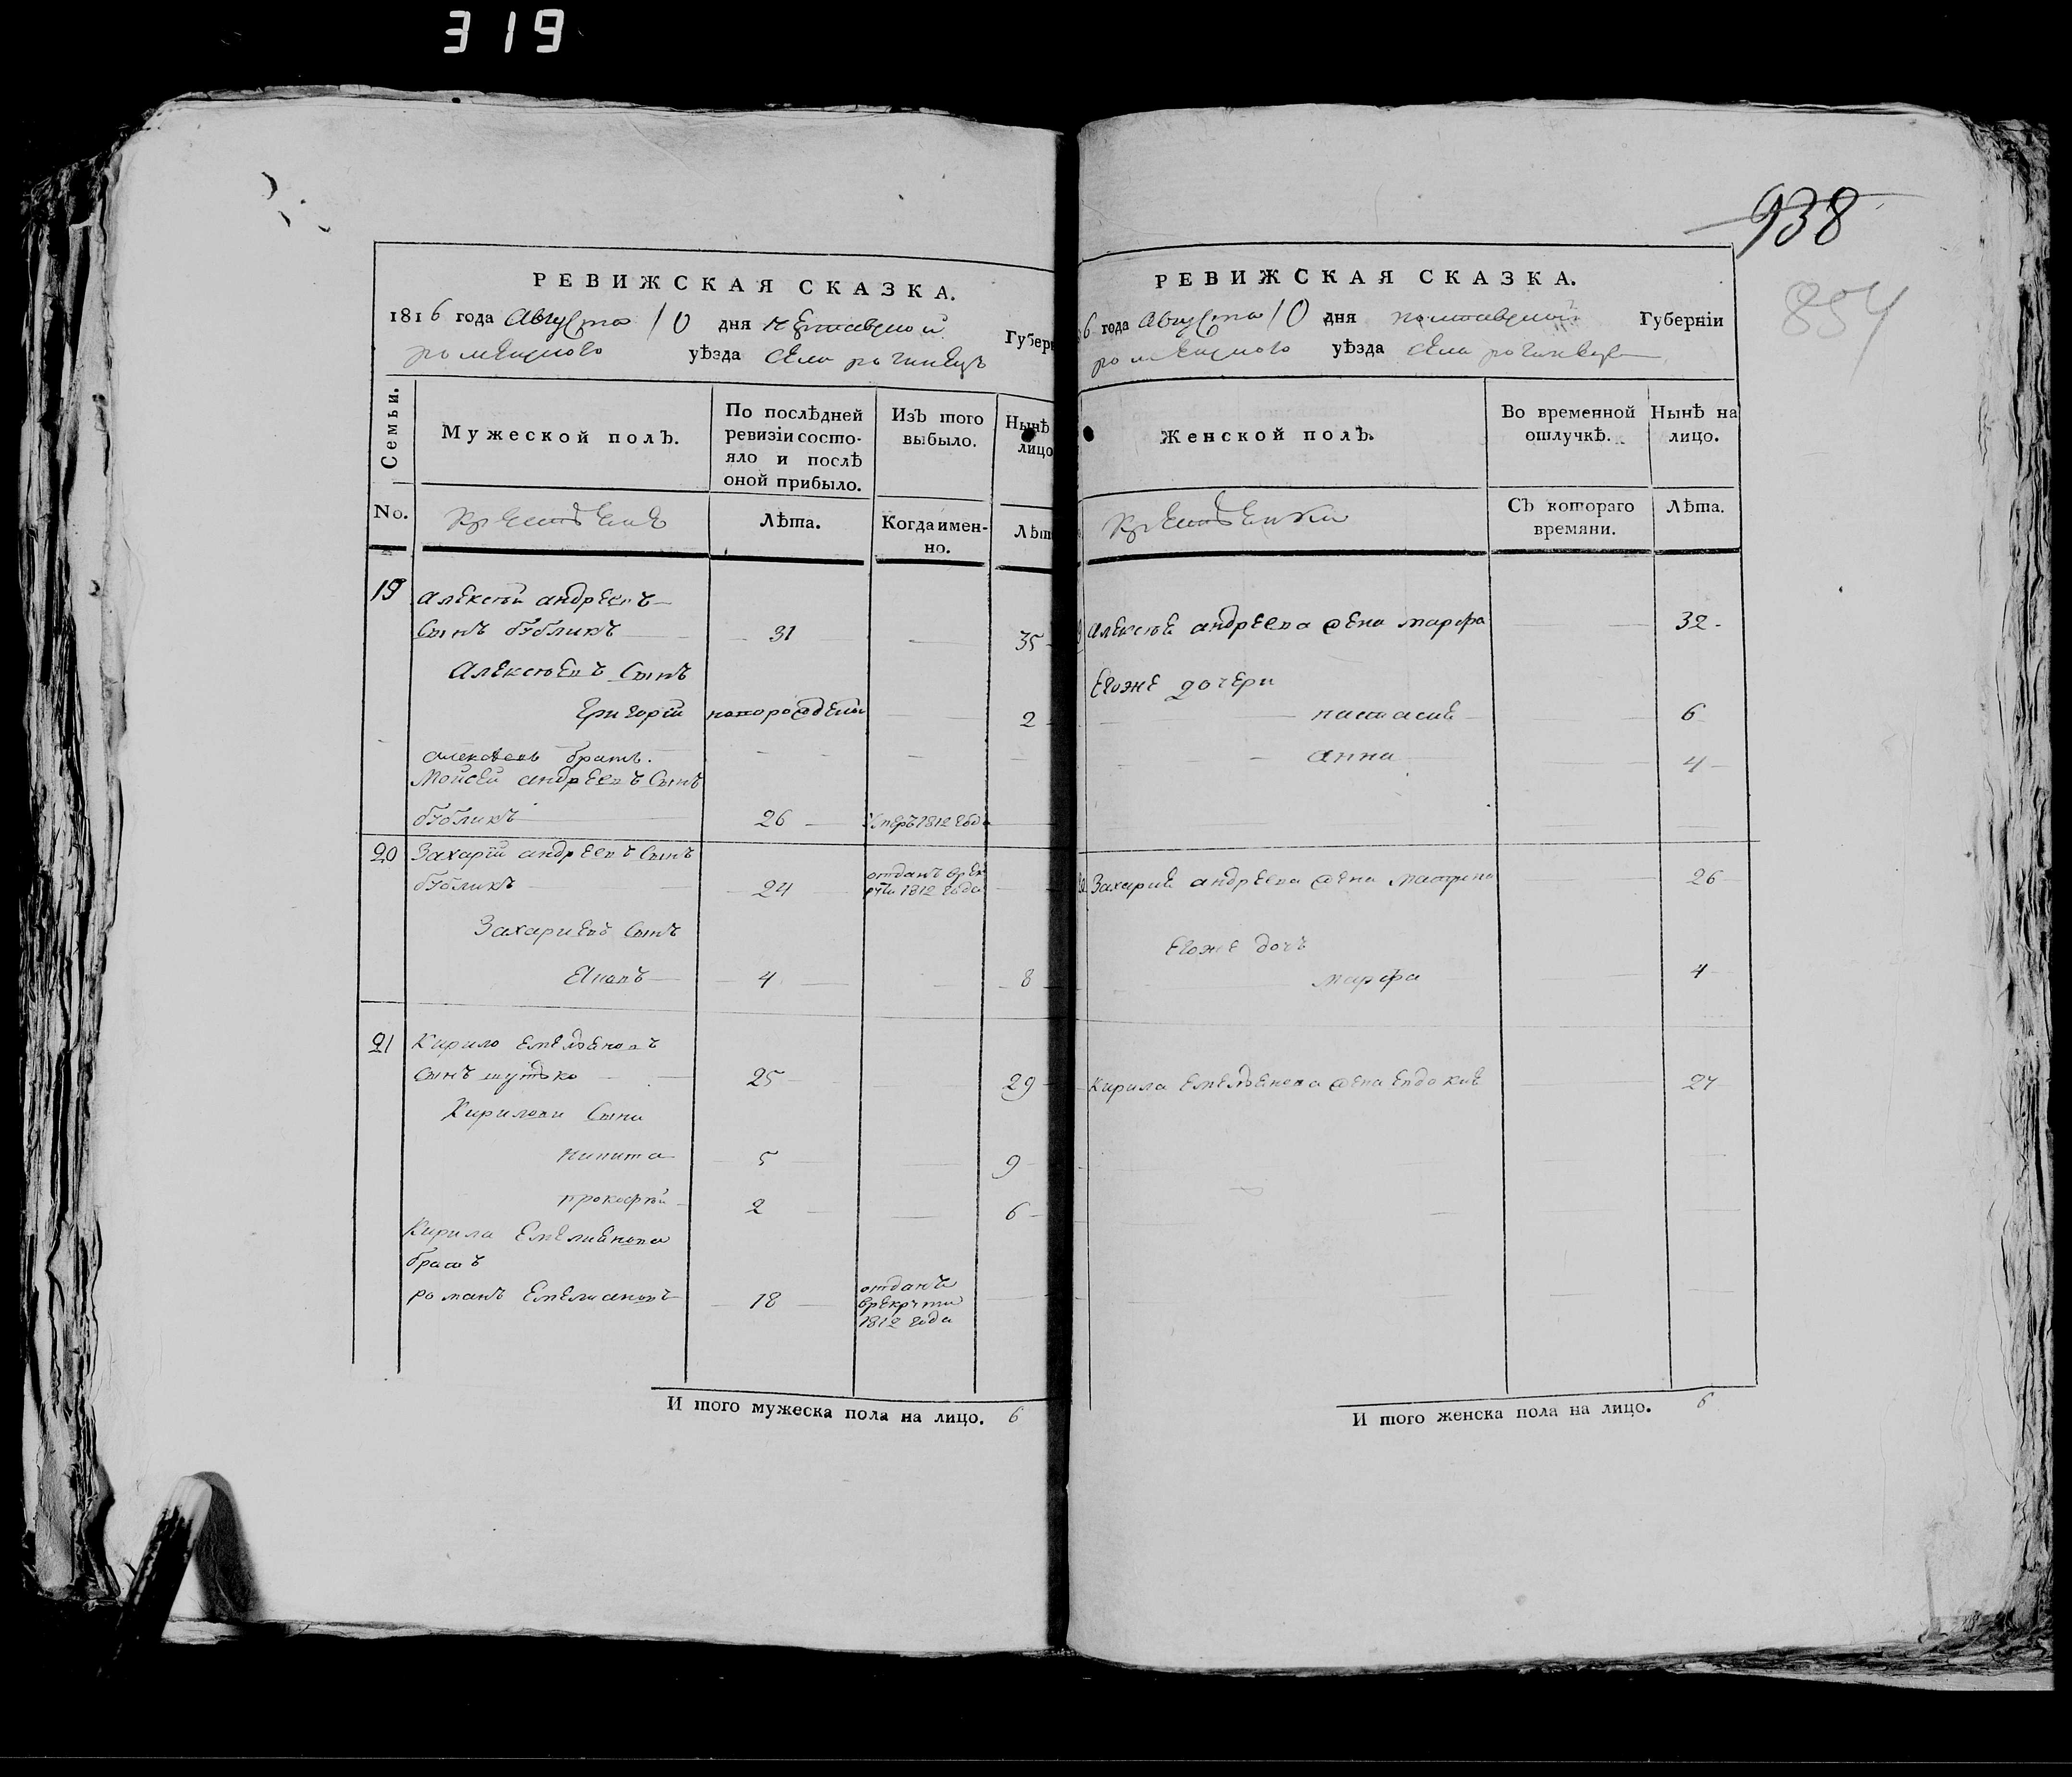 319
938
854
РЕВИЖСКАЯ СКАЗКА.
1816 года Августа 10 дня Полтавской Губерн
роменского уѣзда села рогинецъ
Семьи.
Мужеской полъ.
По послѣдней ревизіи состо-
яло и послѣ
оной прибыло.
Изъ того
выбыло.
Нынѣ
лицо
No.
Лѣта.
Когда имен-
но.
Лѣт
19 Алексѣй андреевъ
Сынъ бубликъ 31 35
Алексѣевъ Сынъ
григорій новорожденъ 2
алексѣевъ братъ.
Мойсей андреевъ Сынъ
бубликъ 26 Умеръ 1812 года
20 Захарій андреевъ Сынъ
бубликъ 24 отданъ врек
руты 1812 года
Захариевъ Сынъ
4 8
21 Кирило емельяновъ
сынъ шутько 25 29
Кирилови Сыни
никита 5 9
прокофій 2 6
Кирила Емелиянова
братъ
романъ Емелиановъ 18 отданъ
врекруты
1812 года
И того мужеска пола на лицо. 6
РЕВИЖСКАЯ СКАЗКА.
6 года Августа 10 дня полтавской Губерніи
роменского уѣзда села рогинецъ
Женской полъ.
Во временной
отлучкѣ.
Нынѣ на
лицо.
Съ котораго
времяни.
Лѣта.
Алексѣя андреева жена марфа 32
Егоже дочери
настасия 6
анна 4
20 Захария андреева жена матрена 26
Егоже дочь
марфа 4
Кирила емельянова жена евдокия 27
И того женска пола на лицо. 6